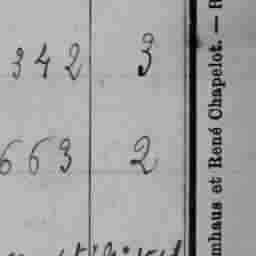 342 3
663 2
mhaus et René Chapelot. —